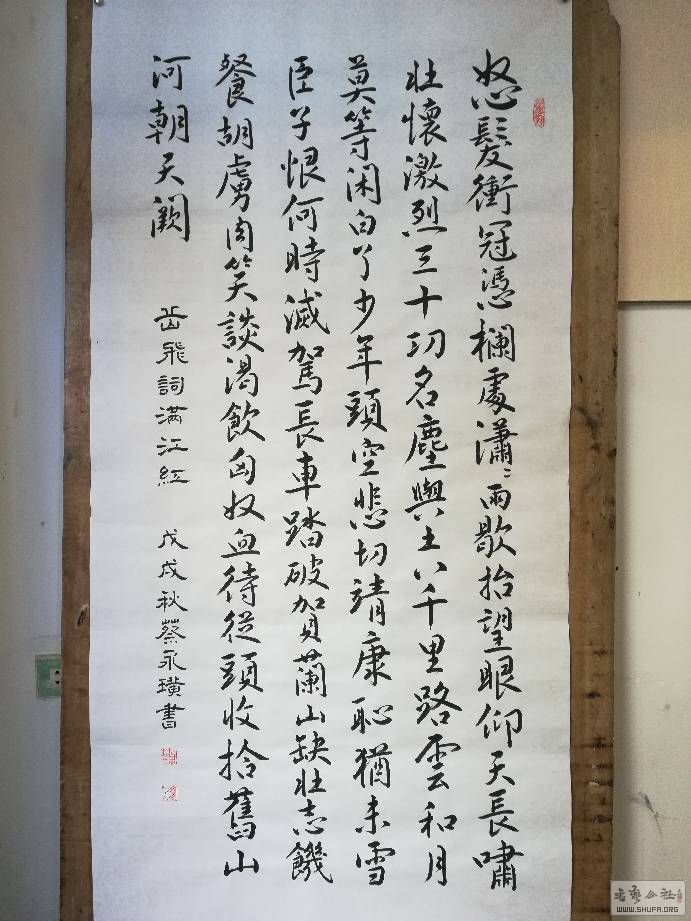 怒髮衝冠憑欄處瀟〻雨歇抬望眼仰天長嘯
壯懷激烈三十功名塵與土八千里路雲和月
莫等闲白了少年頭空悲切靖康恥猶未雪
臣子恨何時滅駕長車踏破賀蘭山缺壯志饑
餐胡虜肉笑談渴飲匈奴血待從頭收拾舊山
河朝天闕
岳飛詞满江紅 戊戌秋蔡永璜書
书艺公社
WWW.SHUFA.ORG